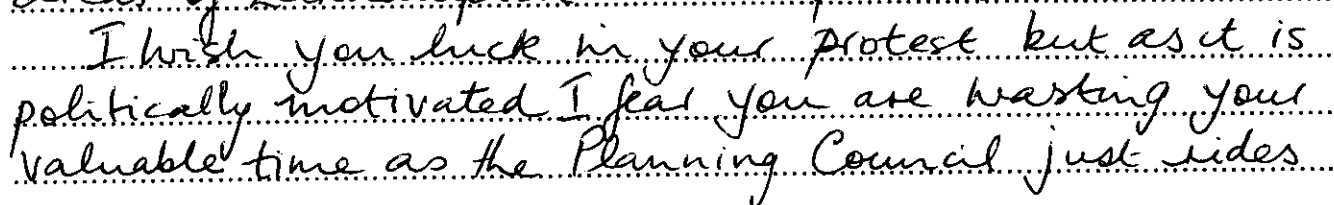 I wish you luck in your protest but as it is
politically motivated I fear you are wasting your
valuable time as the Planning Council just rides